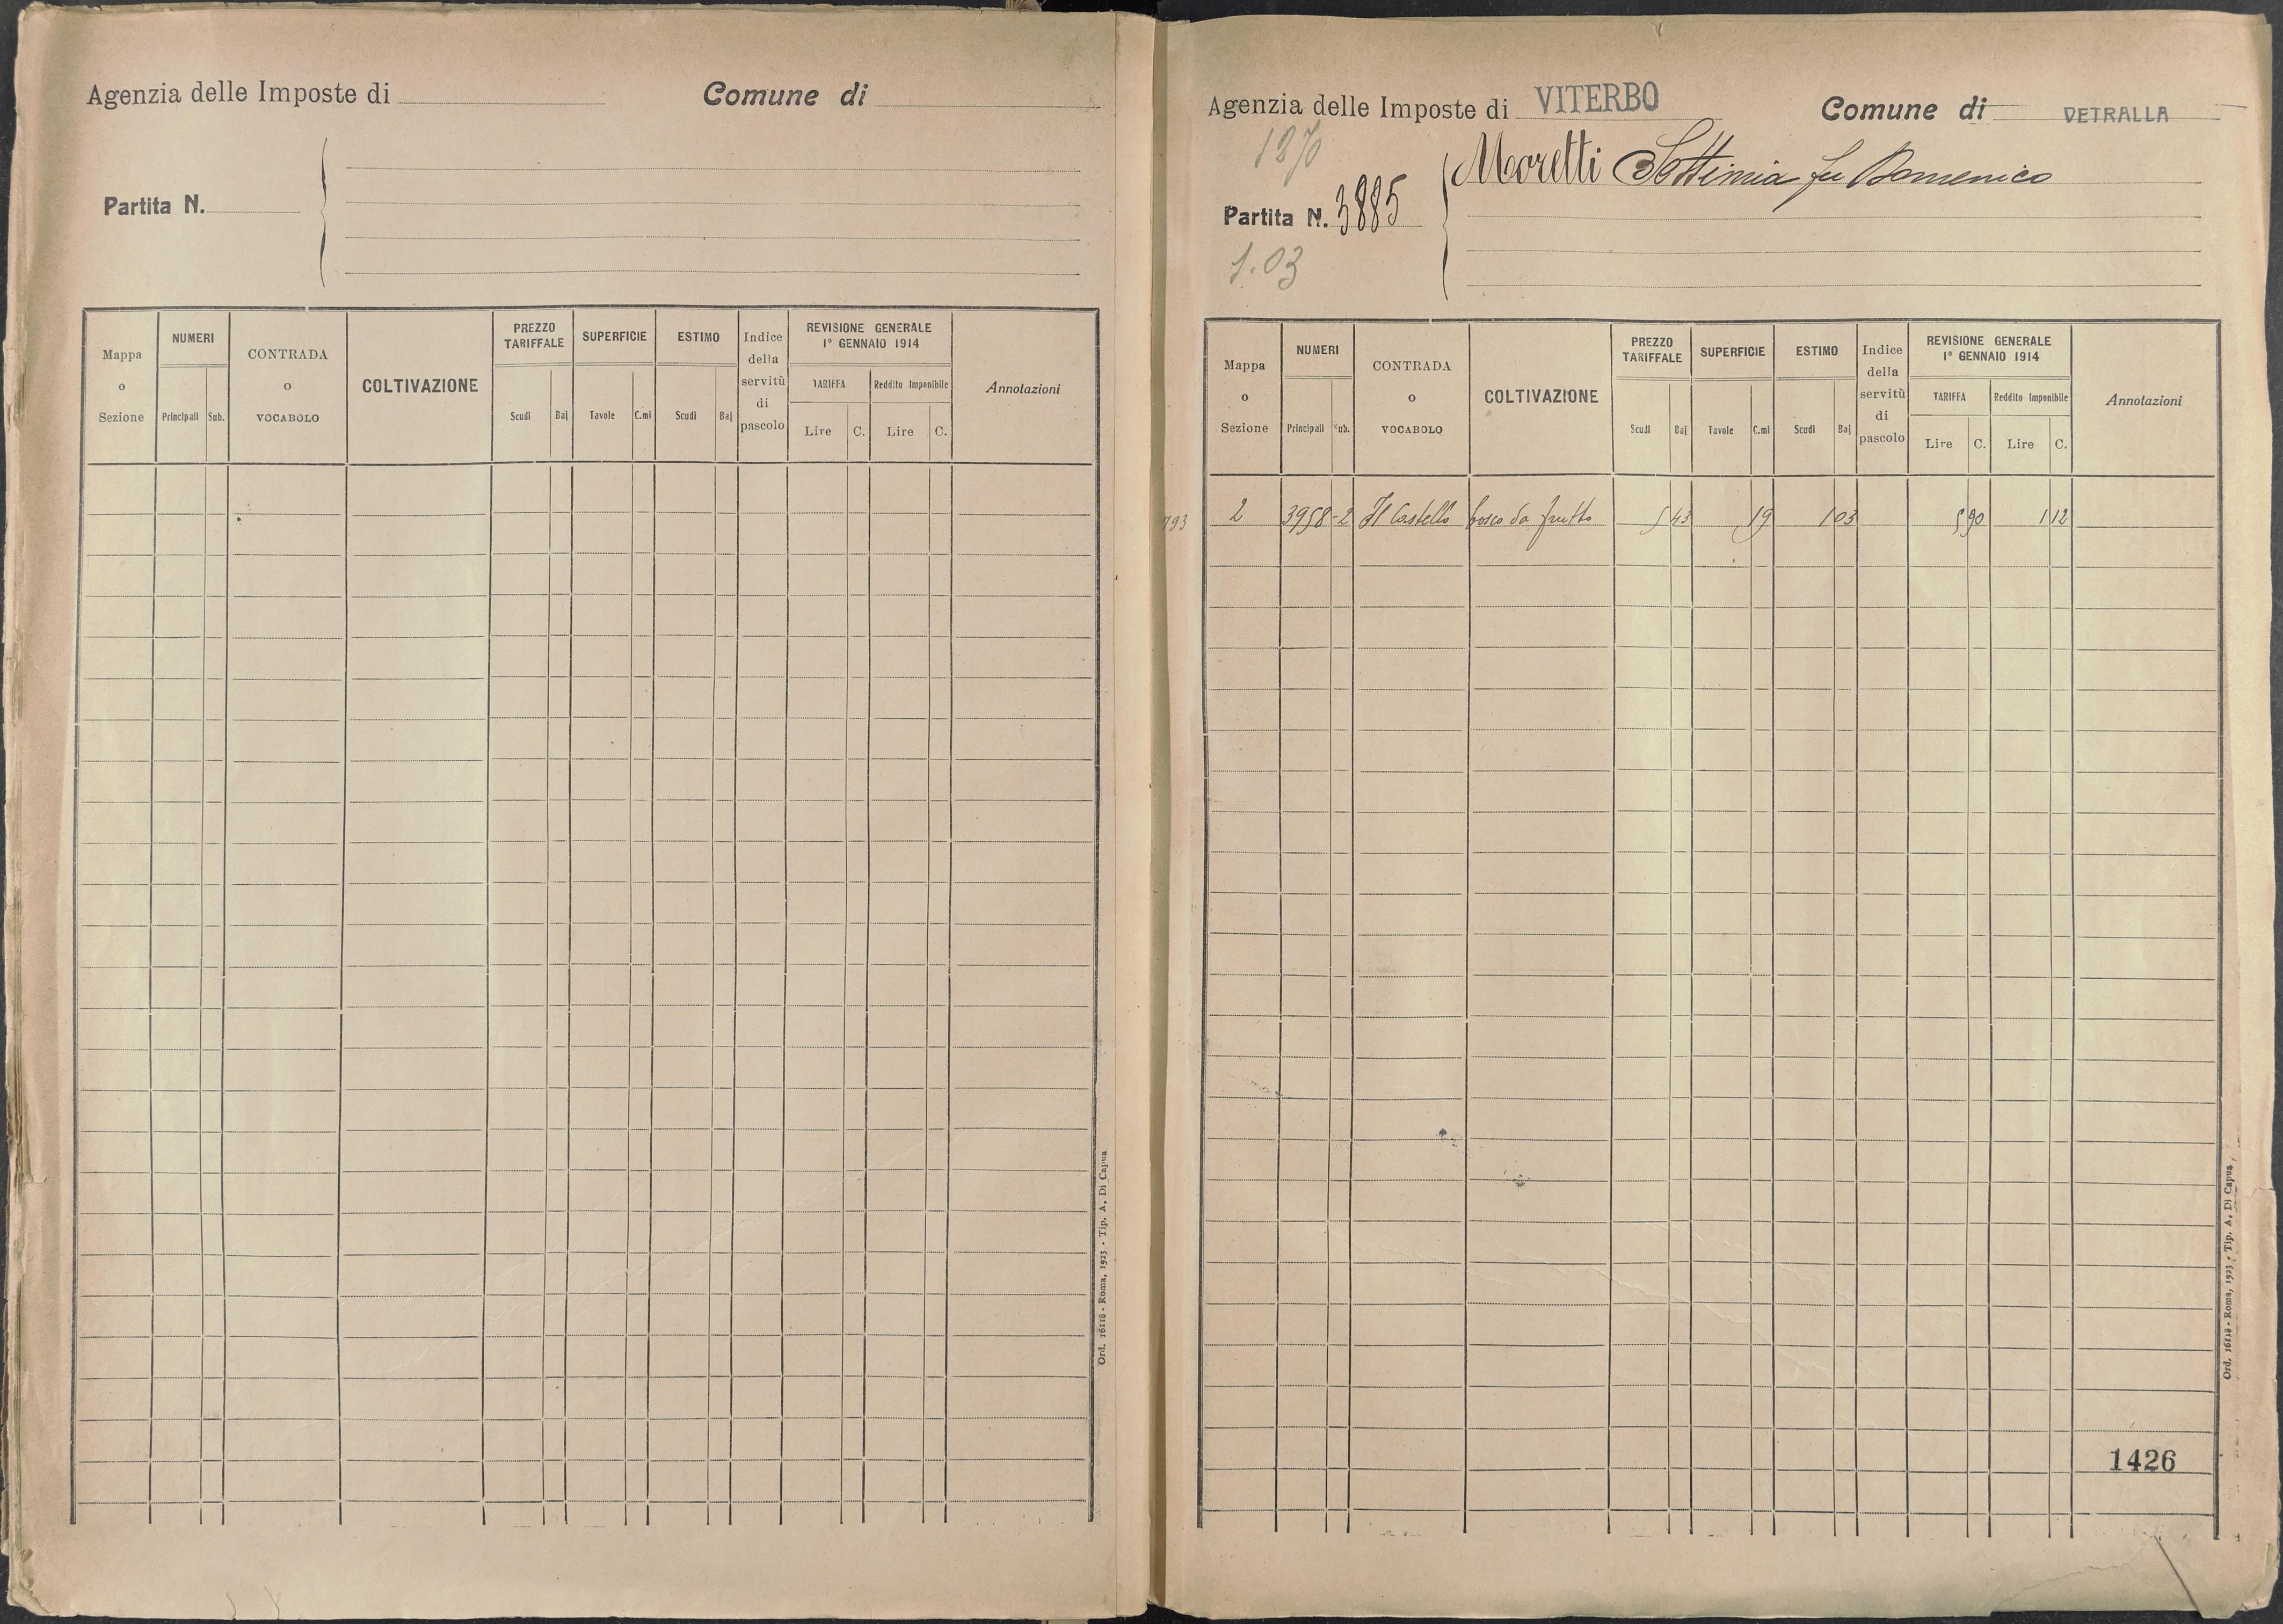 Agenzia delle Imposte di
Comune di
Partita N.
Mappa o Sezione
NUMERI
Principali Sub.
CONTRADA o VOCABOLO
COLTIVAZIONE
PREZZO TARIFFALE
Scudi Baj
SUPERFICIE
Tavole C.mi
ESTIMO
Scudi Baj
Indice della servitù di pascolo
REVISIONE GENERALE
1° GENNAIO 1914
TARIFFA Reddito Imponibile
Lire C. Lire C.
Annotazioni
Ord. 16118 - Roma, 1923 - Tip. A. Di Capua
Agenzia delle Imposte di VITERBO
Comune di VETRALLA
1270
Moretti Settimia fu Domenico
Partita N. 3885
1.03
Mappa o Sezione
NUMERI
Principali Sub.
CONTRADA o VOCABOLO
COLTIVAZIONE
PREZZO TARIFFALE
Scudi Baj
SUPERFICIE
Tavole C.mi
ESTIMO
Scudi Baj
Indice della servitù di pascolo
REVISIONE GENERALE
1° GENNAIO 1914
TARIFFA Reddito Imponibile
Lire C. Lire C.
Annotazioni
793 2 3958-2 Il Castello bosco da frutto 5 43 19 1 03 5 90 1 12
1426
Ord. 16118 - Roma, 1923 - Tip. A. Di Capua